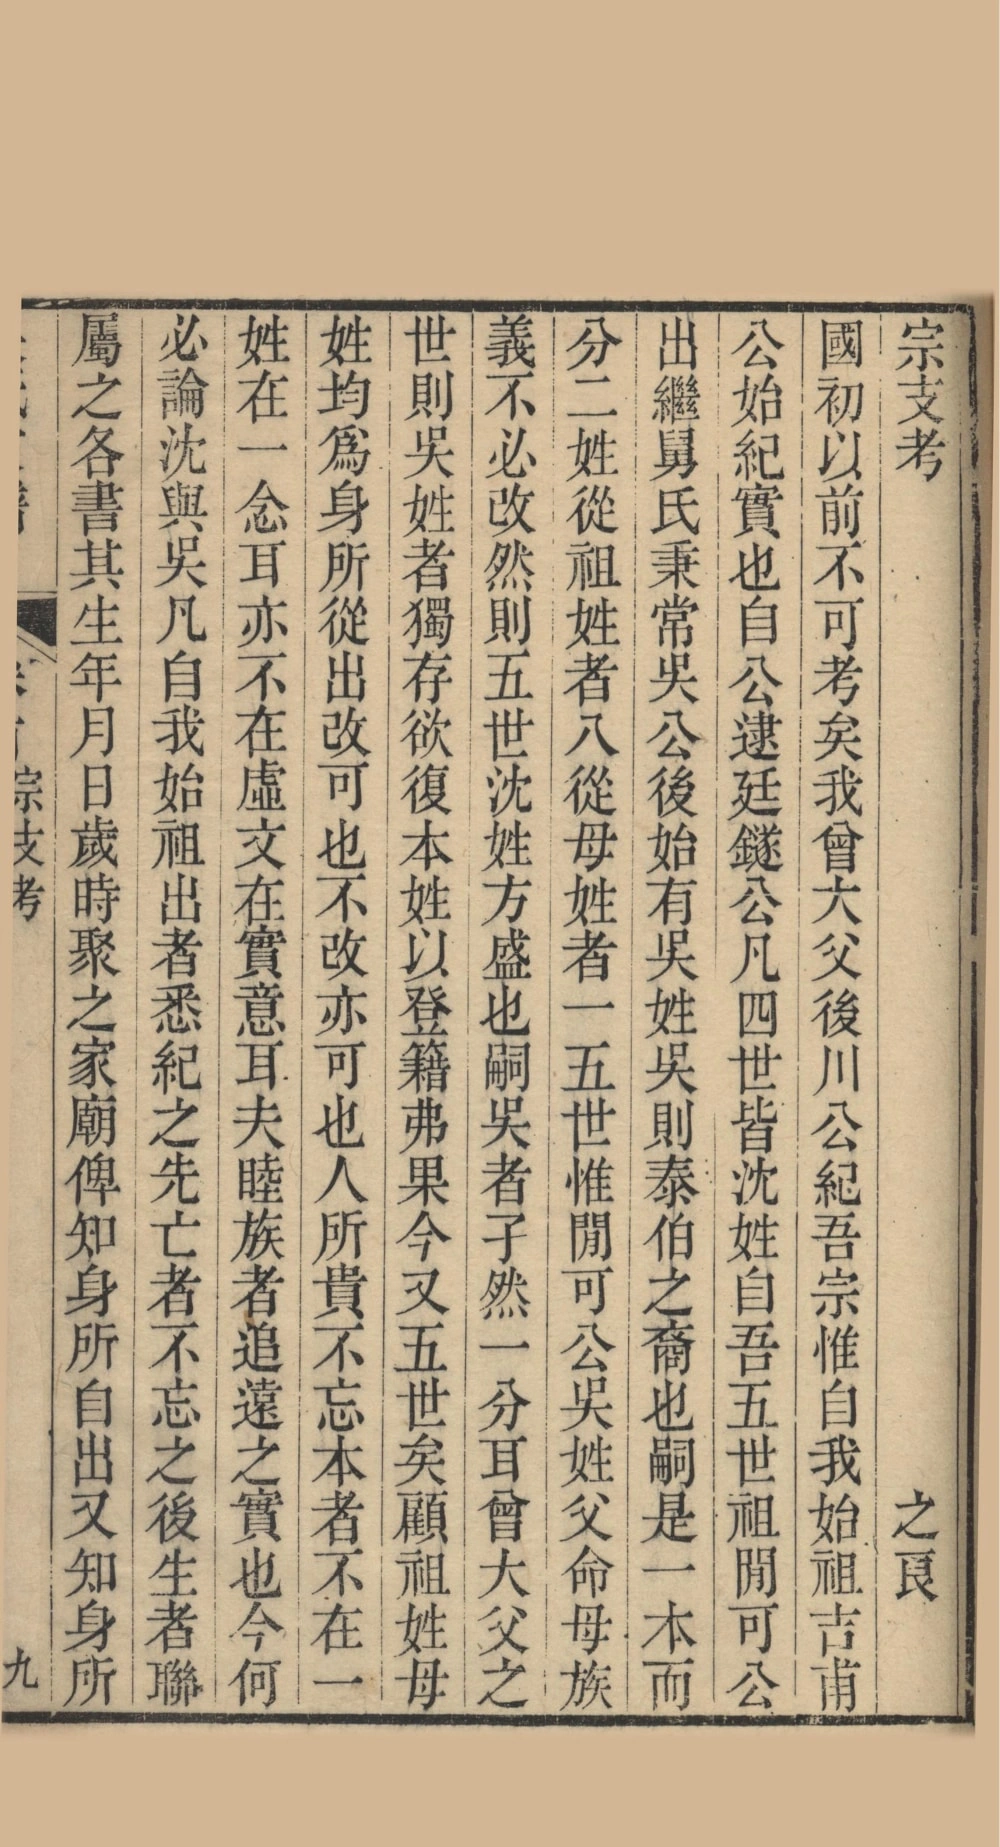 宗支考　之頁
國初以前不可考矣我曾大父後川公紀吾宗惟自我始祖吉甫
公始紀實也自公逮廷鐩公凡四世皆沈姓自吾五世祖閒可公
出繼舅氏秉常吳公後始有吳姓吳則泰伯之裔也嗣是一本而
分二姓從祖姓者八從母姓者一五世惟閒可公吳姓父命母族
義不必改然則五世沈姓方盛也嗣吳者孑然一分耳曾大父之
世則吳姓者獨存欲復本姓以登籍弗果今又五世矣顧祖姓母
姓均爲身所從出改可也不改亦可也人所貴不忘本者不在一
姓在一念耳亦不在虛文在實意耳夫睦族者追遠之實也今何
必論沈與吳凡自我始祖出者悉紀之先亡者不忘之後生者聯
屬之各書其生年月日歲時聚之家廟俾知身所自出又知身所
宗支考　九